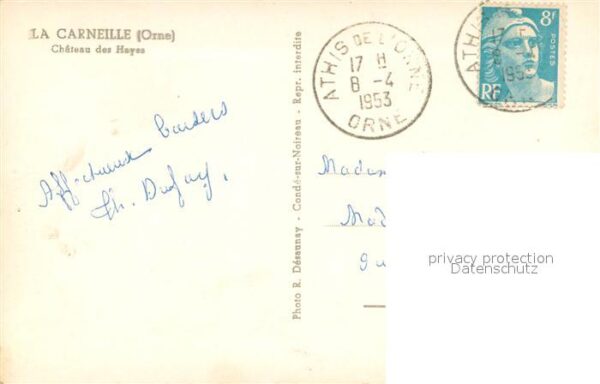 LA CARNEILLE (Orne)
Château des Hayes
Affectueux
Ch. Dufay.
Photo R. Désaunay - Condé-sur-Noireau - Repr. interdite
ATHIS DE L'ORNE
17 H
8 - 4
1953
ORNE
8F
POSTES
RF
ATHIS
17
1953
Madam
Mad
privacy protection
Datenschutz